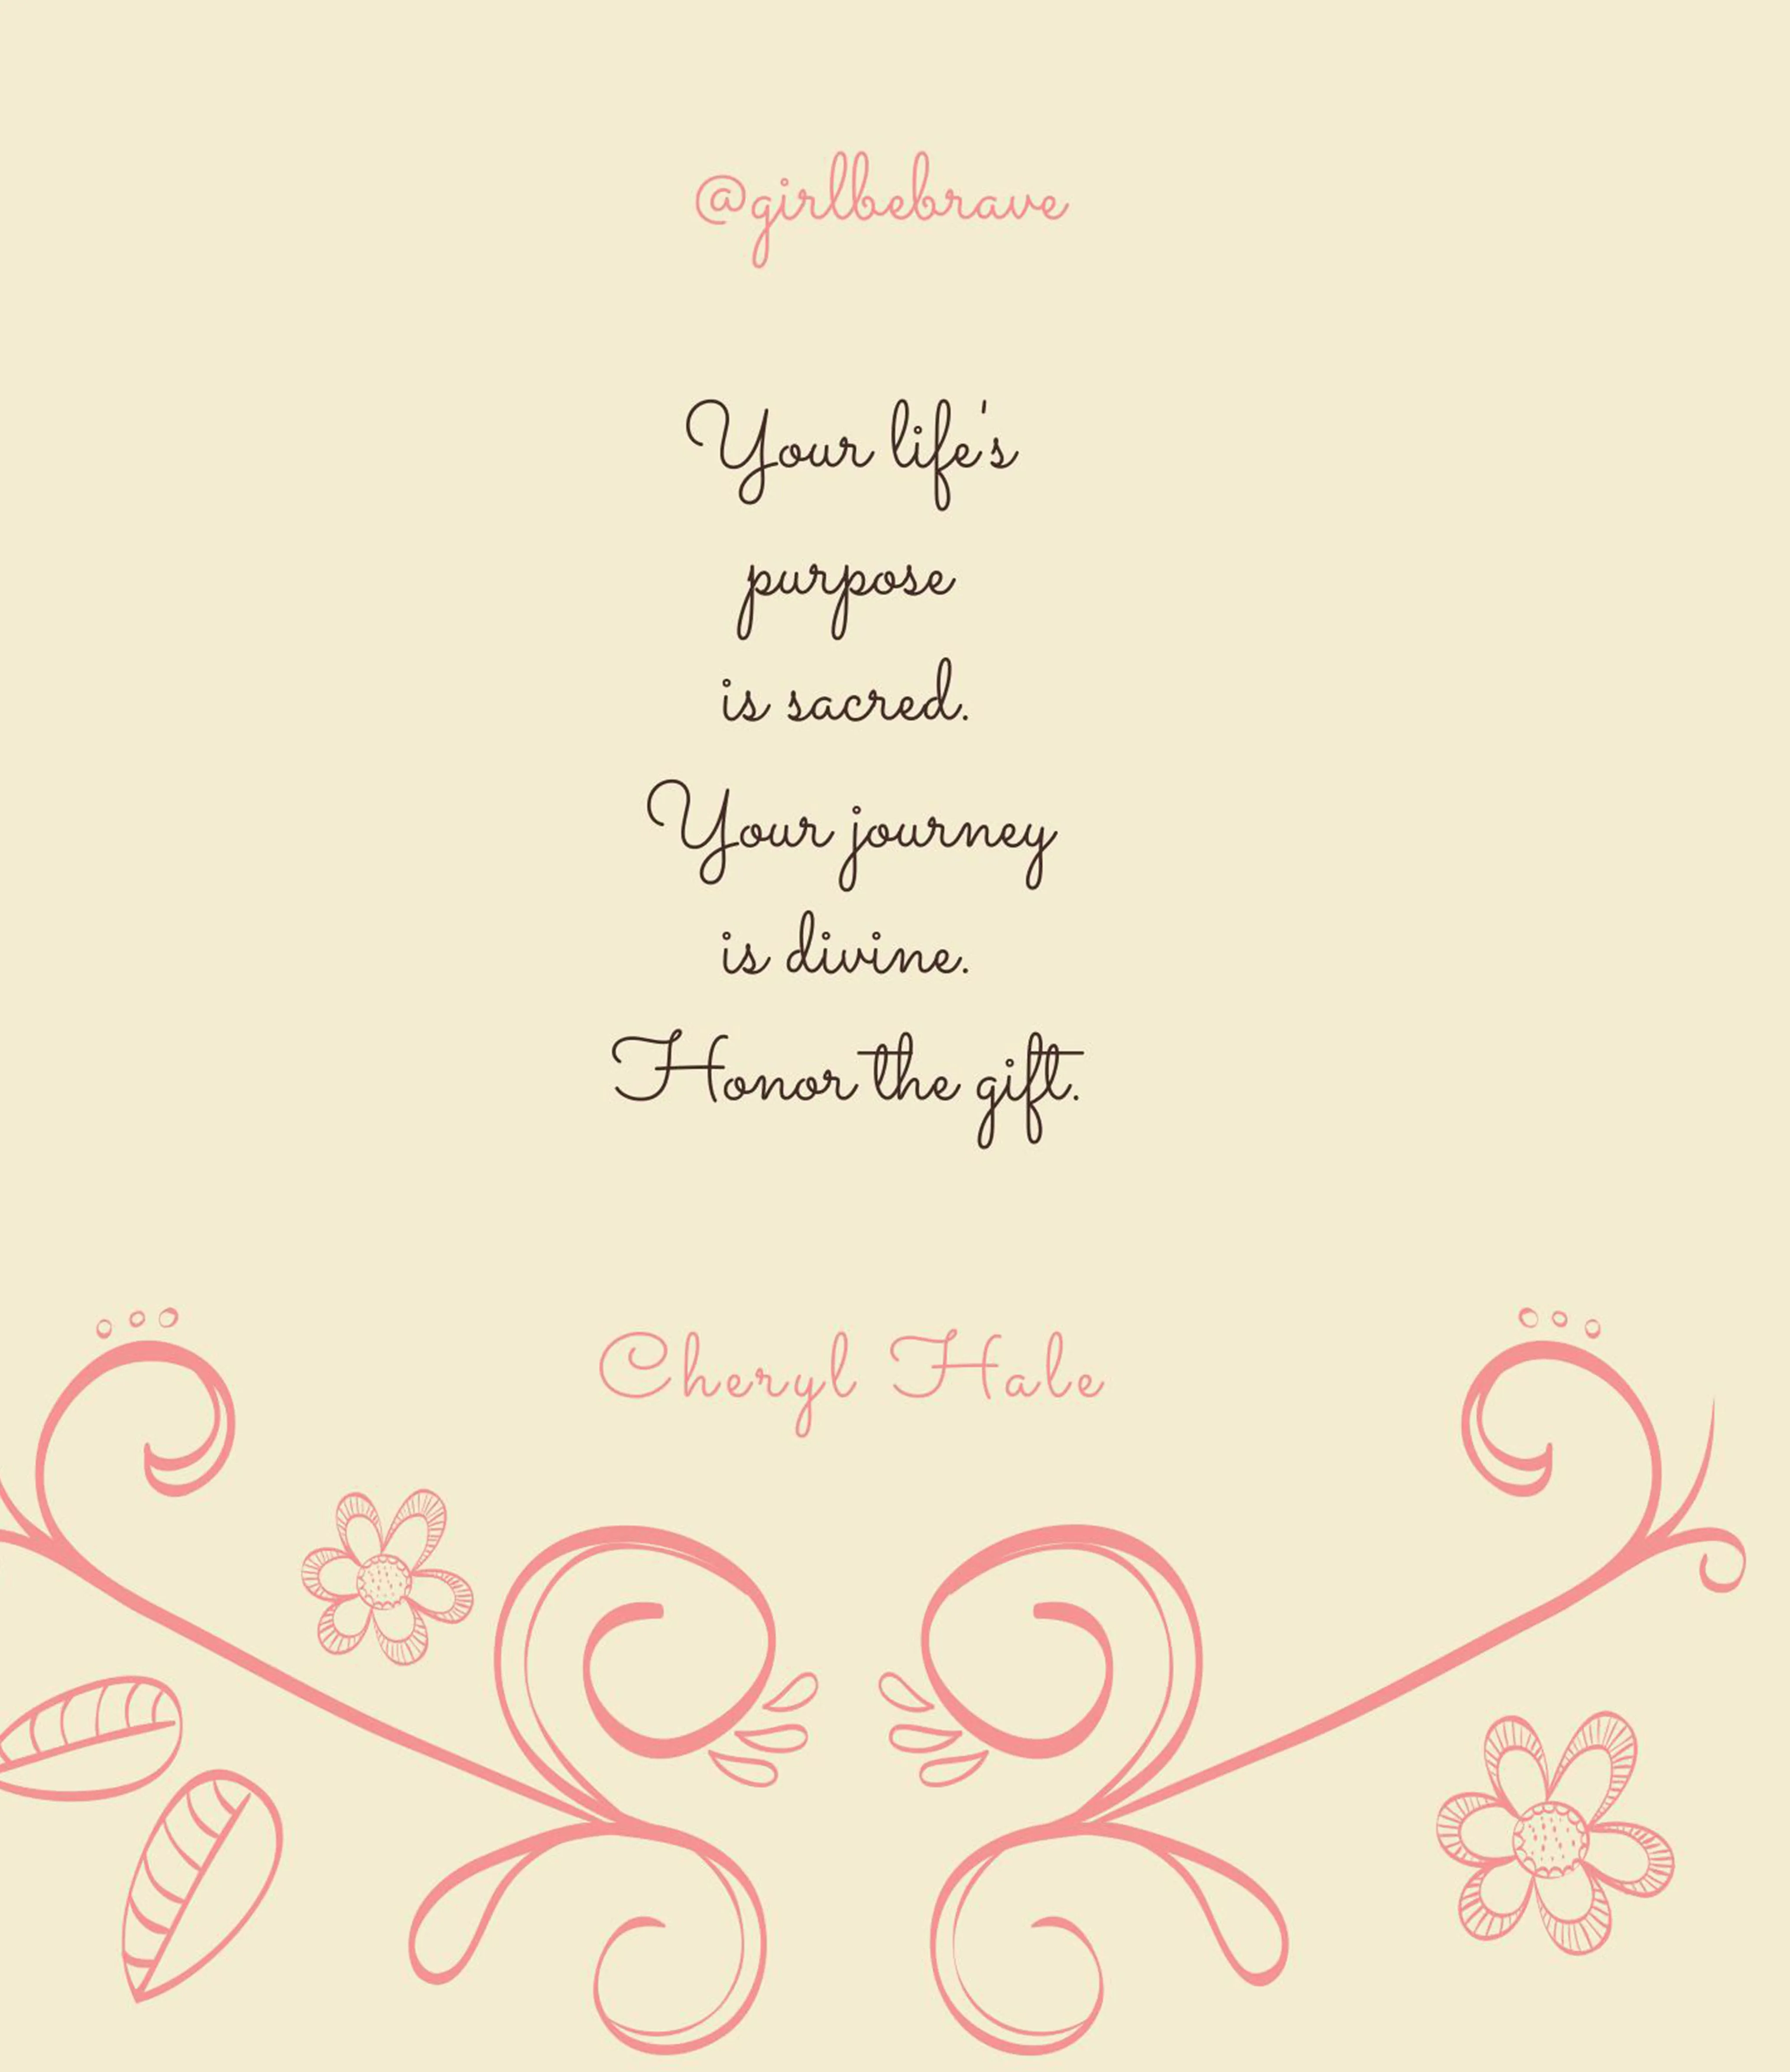 @girlbebrave
Your life's
purpose
is sacred.
Your journey
is divine.
Honor the gift.
Cheryl Hale